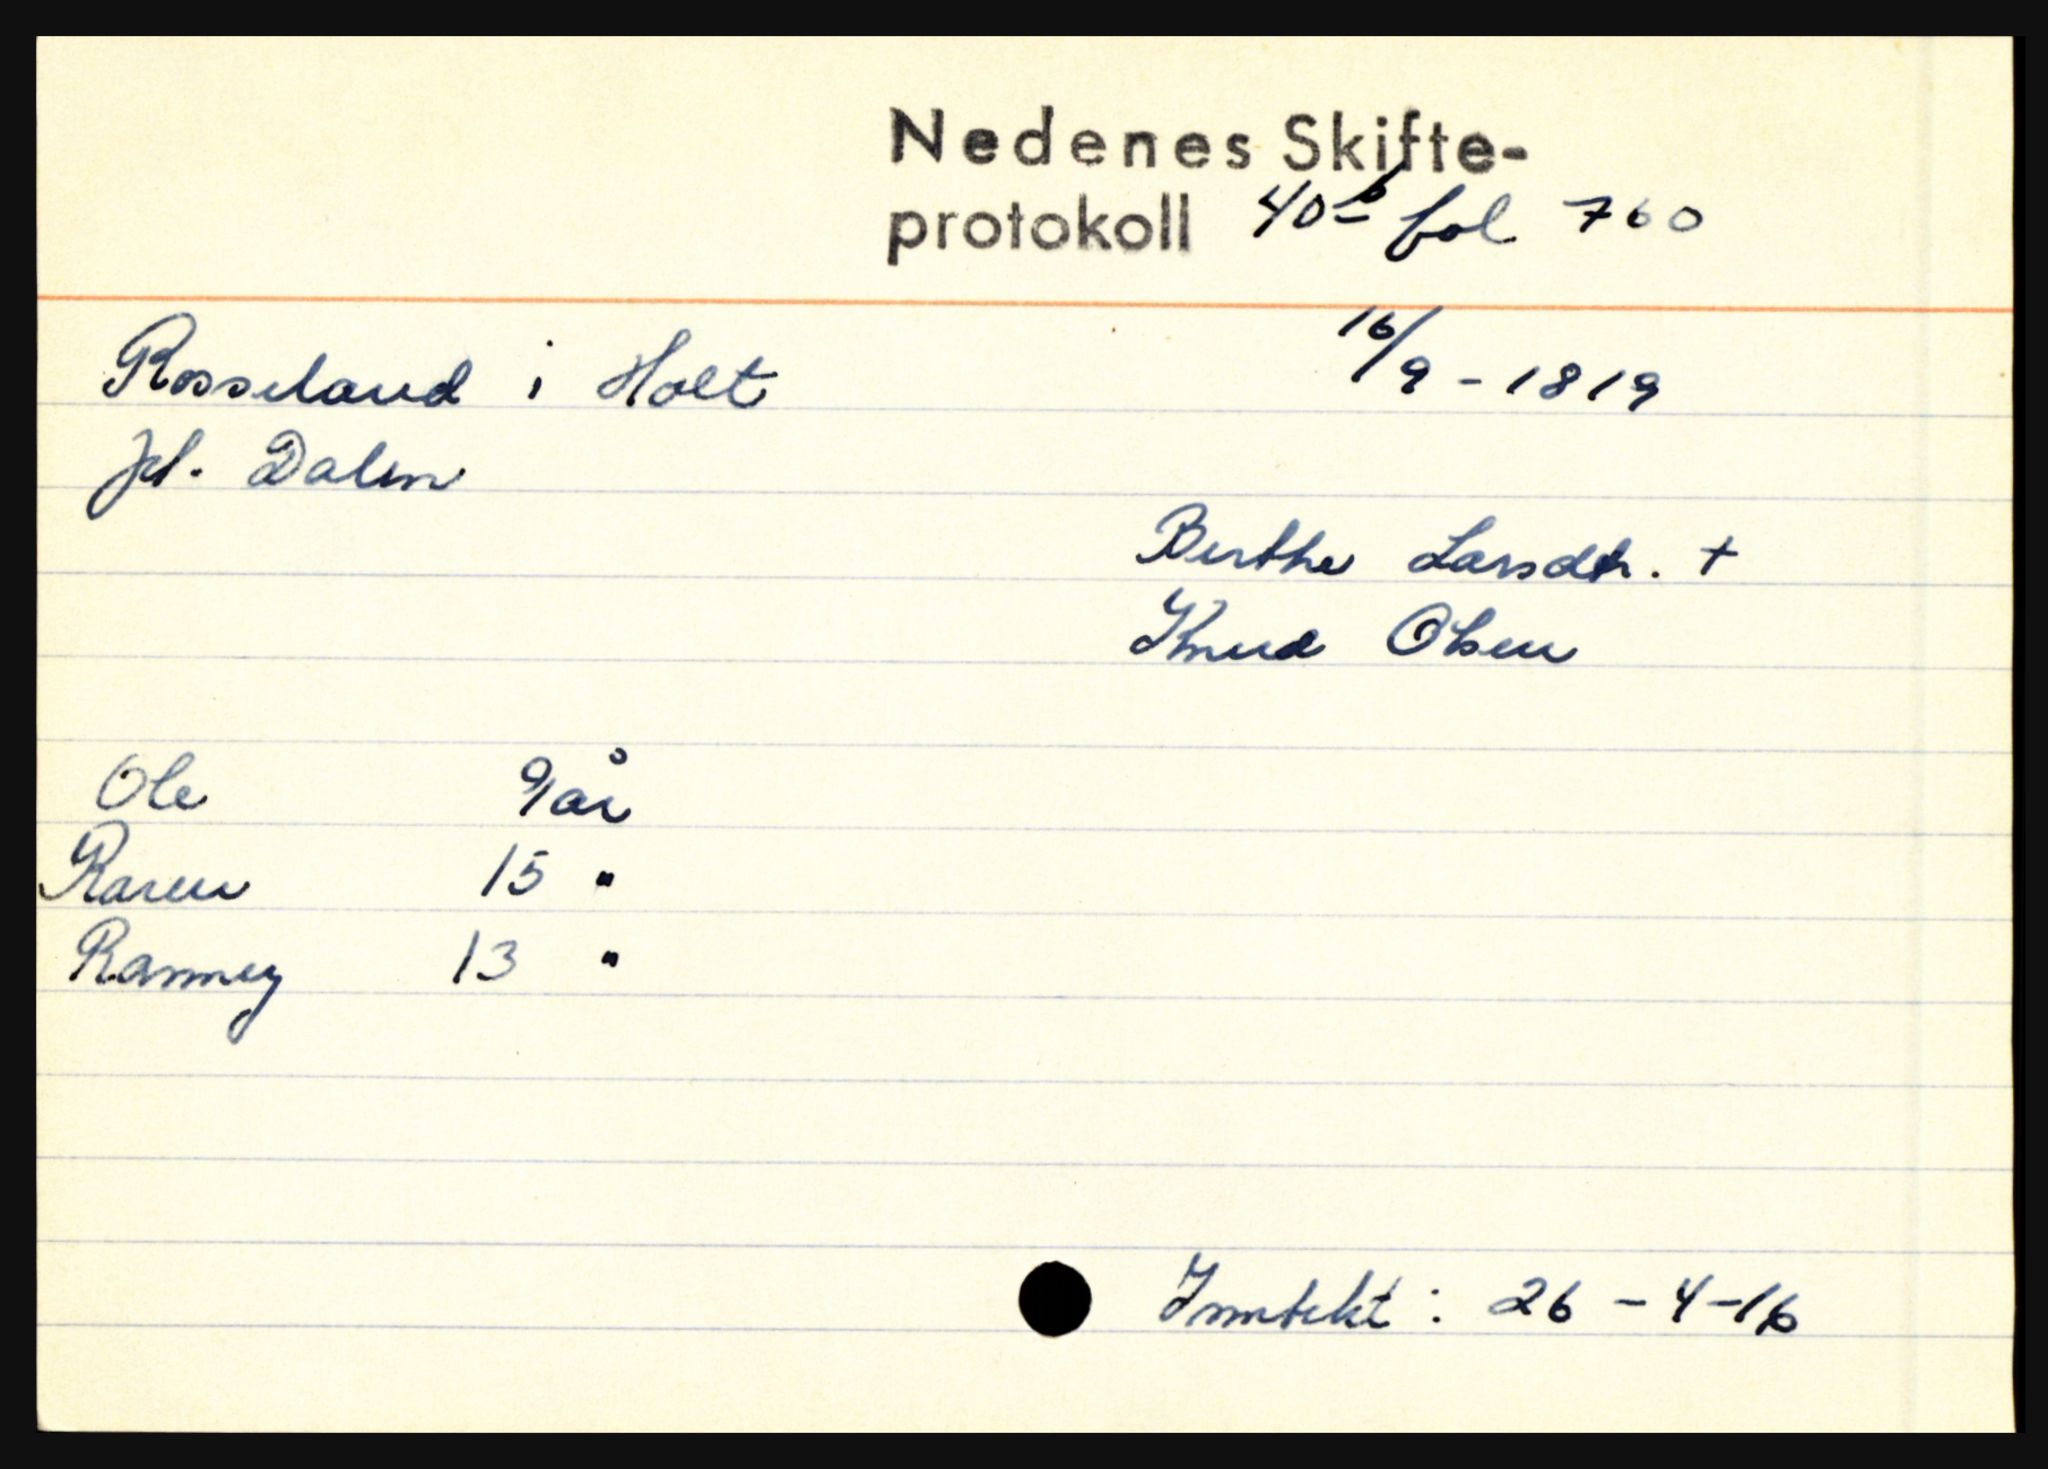 Nedenes Skifte-
protokoll 40b fol 760
Rosseland i Holt 16/9 - 1819
pl. Dalen
Berthe Larsdtr. +
Knud Olsen
Ole 9 år
Karen 15 "
Ranney 13 "
Inntekt : 26 - 4 - 16